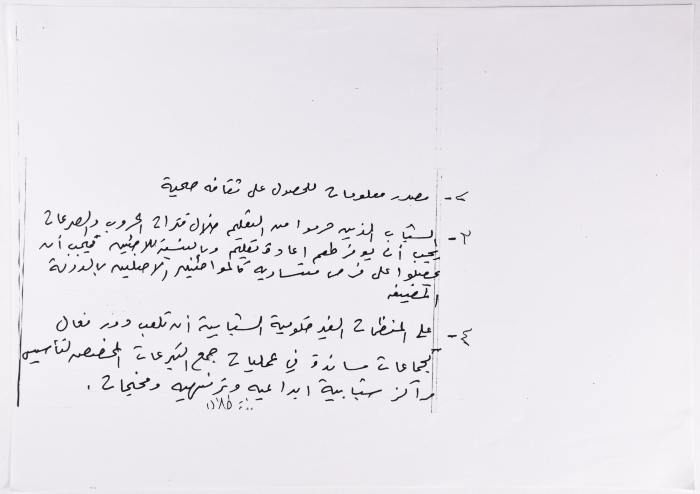 ٢- مصدر معلومات للحصول على ثقافه صحية
٣- الشباب الذين حرموا من التعليم خلال فترات الحروب والصرعات
يجب أن يوفر لهم اعادة تعليم وبالنسبة للاجئين فيجب أن
يحصلوا على فرص متساويه كالمواطنين الاصليين بالدولة
المضيفه
٤- على المنظمات الغير حكومية الشبابية أن تلعب دور فعال
كجماعات مساندة في عمليات جمع التبرعات المخصص لتأسيس
مراكز شبابية ابداعيه وترفيهيه ومخيمات.